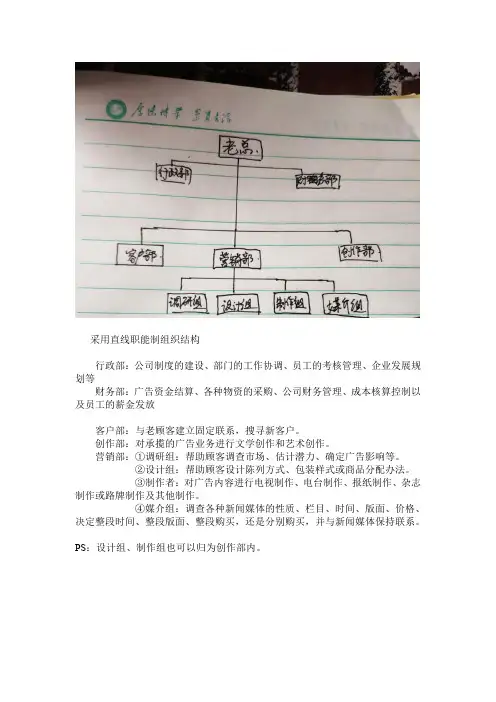 老总
行政部
财务部
客户部
营销部
创作部
调研组
设计组
制作组
媒介组
采用直线职能制组织结构
行政部：公司制度的建设、部门的工作协调、员工的考核管理、企业发展规
划等
财务部：广告资金结算、各种物资的采购、公司财务管理、成本核算控制以
及员工的薪金发放
客户部：与老顾客建立固定联系，搜寻新客户。
创作部：对承揽的广告业务进行文学创作和艺术创作。
营销部：①调研组：帮助顾客调查市场、估计潜力、确定广告影响等。
②设计组：帮助顾客设计陈列方式、包装样式或商品分配办法。
③制作者：对广告内容进行电视制作、电台制作、报纸制作、杂志
制作或路牌制作及其他制作。
④媒介组：调查各种新闻媒体的性质、栏目、时间、版面、价格、
决定整段时间、整段版面、整段购买，还是分别购买，并与新闻媒体保持联系。
PS：设计组、制作组也可以归为创作部内。